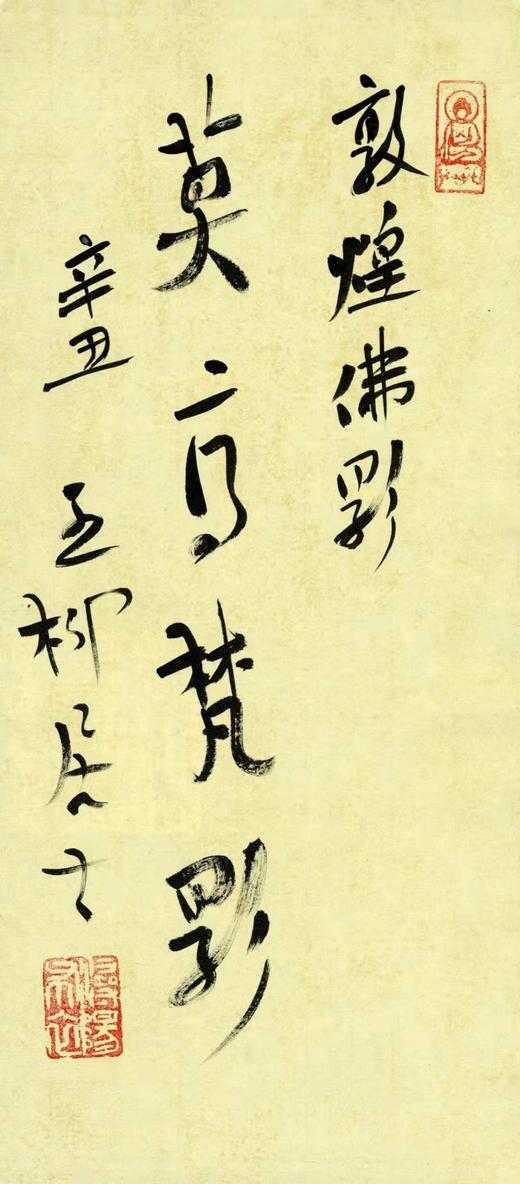 敦煌佛影
莫高梵影
辛丑 五柳居士